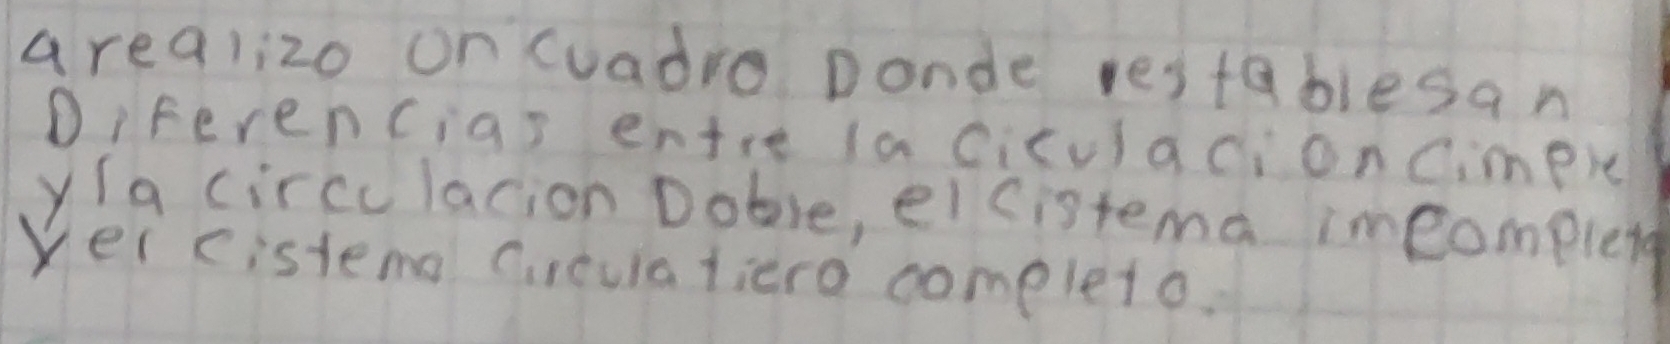 a realizo un cuadro Donde restablesan
Diferencias entre la Ciculacion Cimple
y la circulacion Doble, el Cistema imcompleto
y el cistema Circulaticro completo.